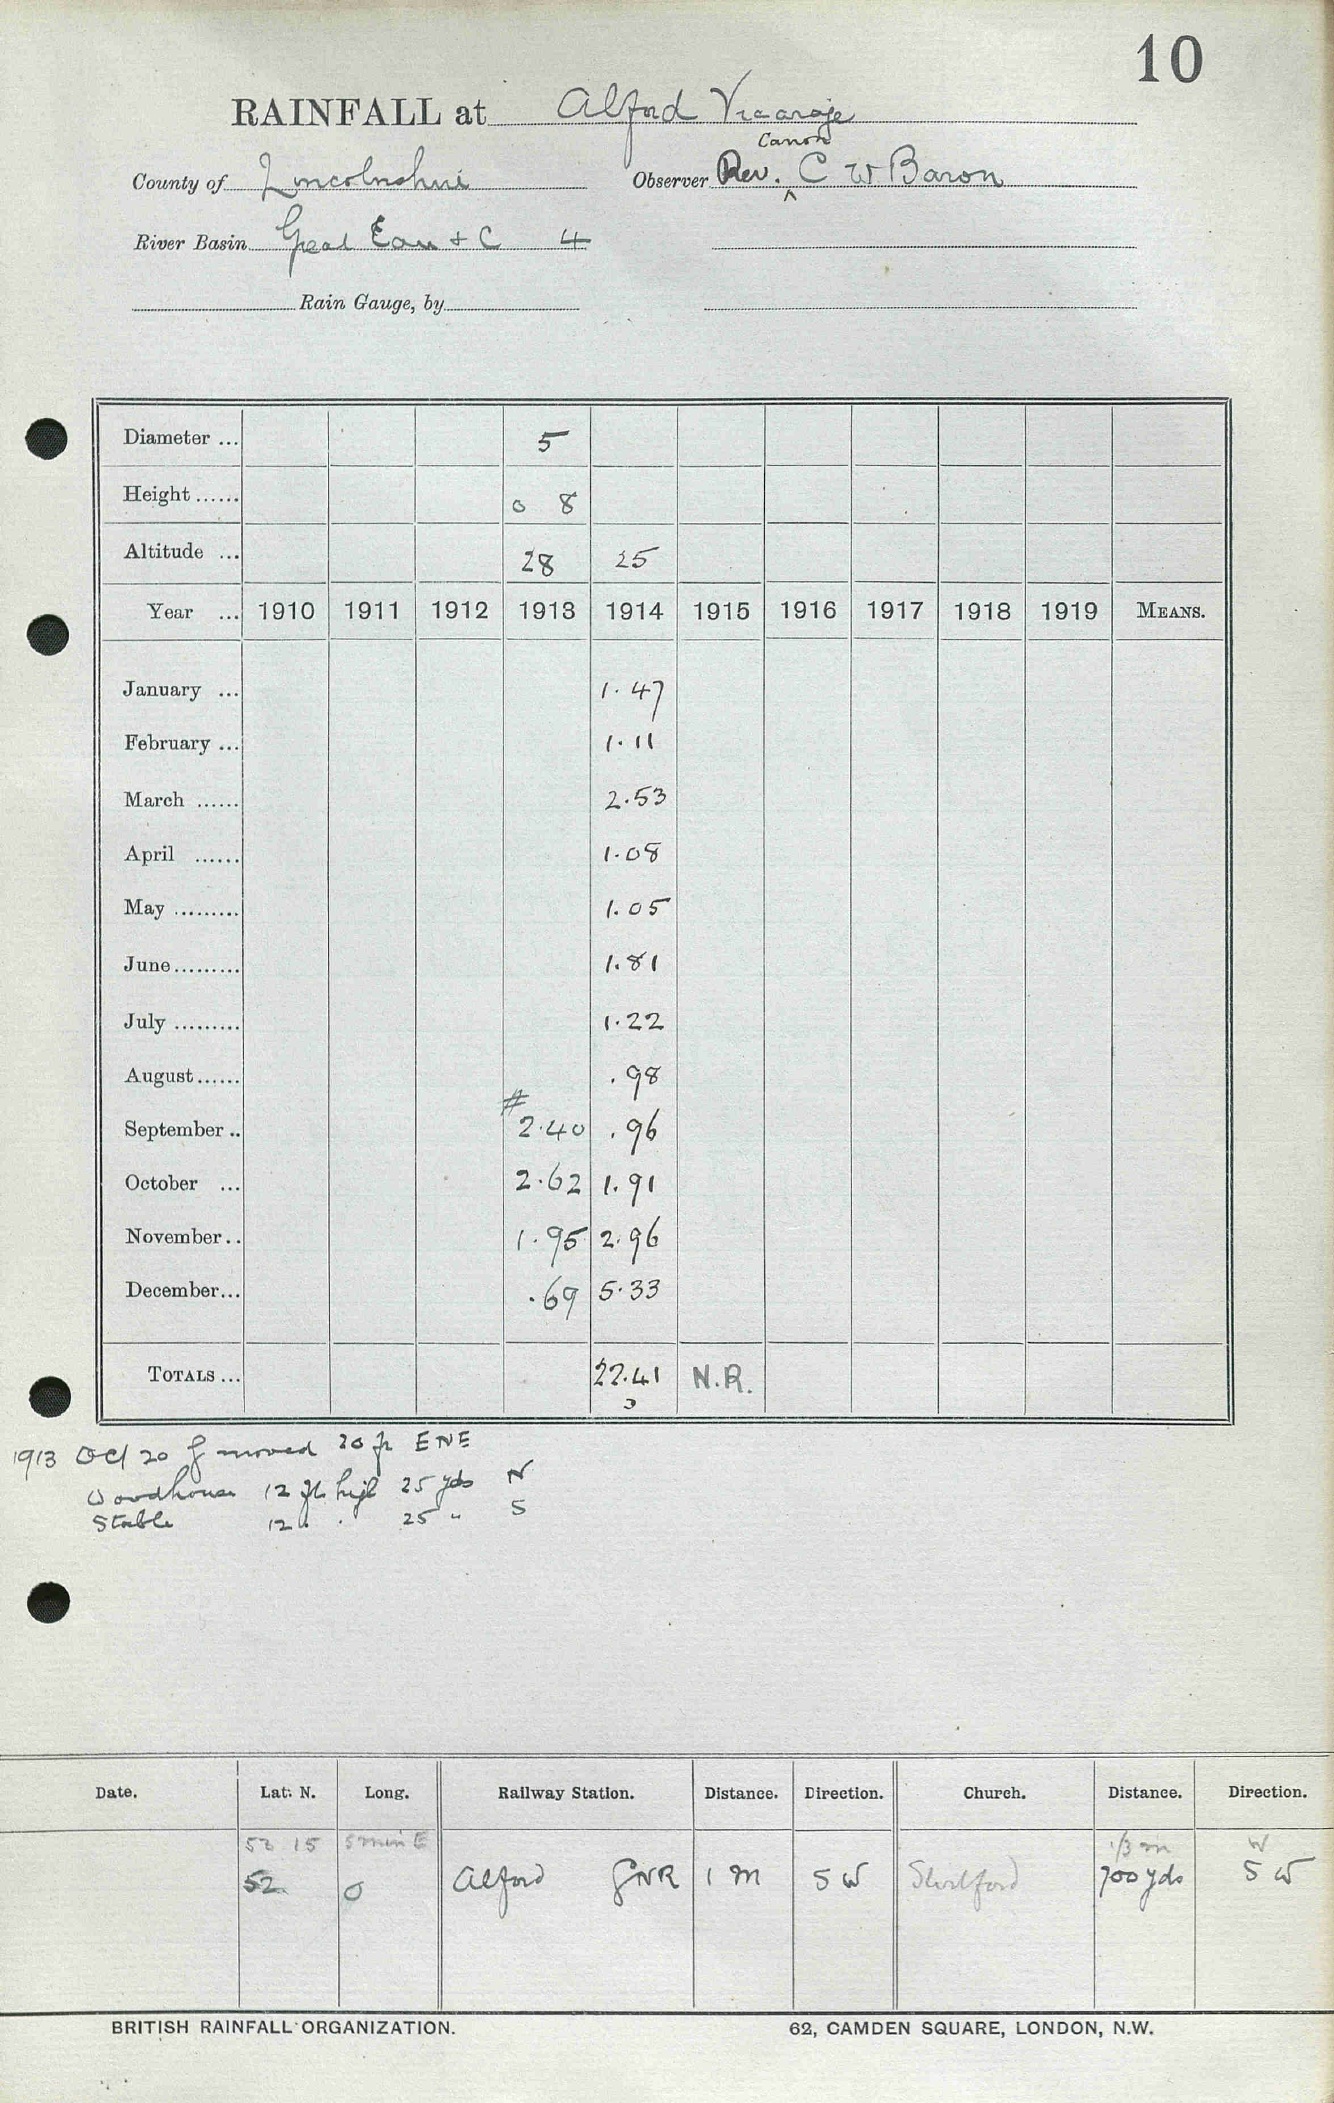 10
RAINFALL at Alford Vicarage
Canon
County of Lincolnshire Observer Rev. ^ C W Baron
River Basin Great Eau + C 4
Rain Gauge, by
Diameter ... 5
Height ...... 0 8
Altitude ... 28 25
Year ... 1910 1911 1912 1913 1914 1915 1916 1917 1918 1919 MEANS.
January ... 1.47
February ... 1.11
March ...... 2.53
April ...... 1.08
May ......... 1.05
June ......... 1.81
July ......... 1.22
August ...... .98
#
September .. 2.40 .96
October ... 2.62 1.91
November .. 1.95 2.96
December ... .69 5.33
TOTALS ... 22.41 N.R.
1913 Oct 20 g moved 20 ft ENE
Woodhouse 12 ft high 25 yds N
Stable 12 " " 25 " S
Date. Lat. N. Long. Railway Station. Distance. Direction. Church. Distance. Direction.
52 15 5 min E 1/3 m W
52 0 Alford GNR 1 m SW 700 yds SW
BRITISH RAINFALL ORGANIZATION. 62, CAMDEN SQUARE, LONDON, N.W.